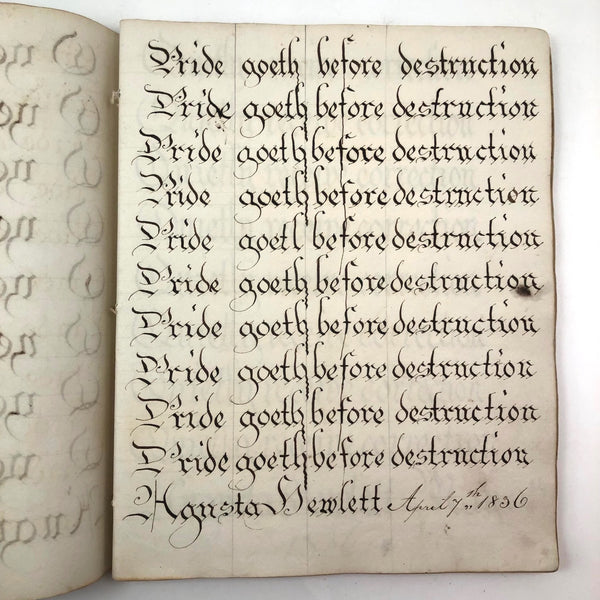 Pride goeth before destruction
Pride goeth before destruction
Pride goeth before destruction
Pride goeth before destruction
Pride goetl before destruction
Pride goeth before destruction
Pride goeth before destruction
Pride goeth before destruction
Pride goeth before destruction
Pride goeth before destruction
Agusta Hewlett April 7th 1836